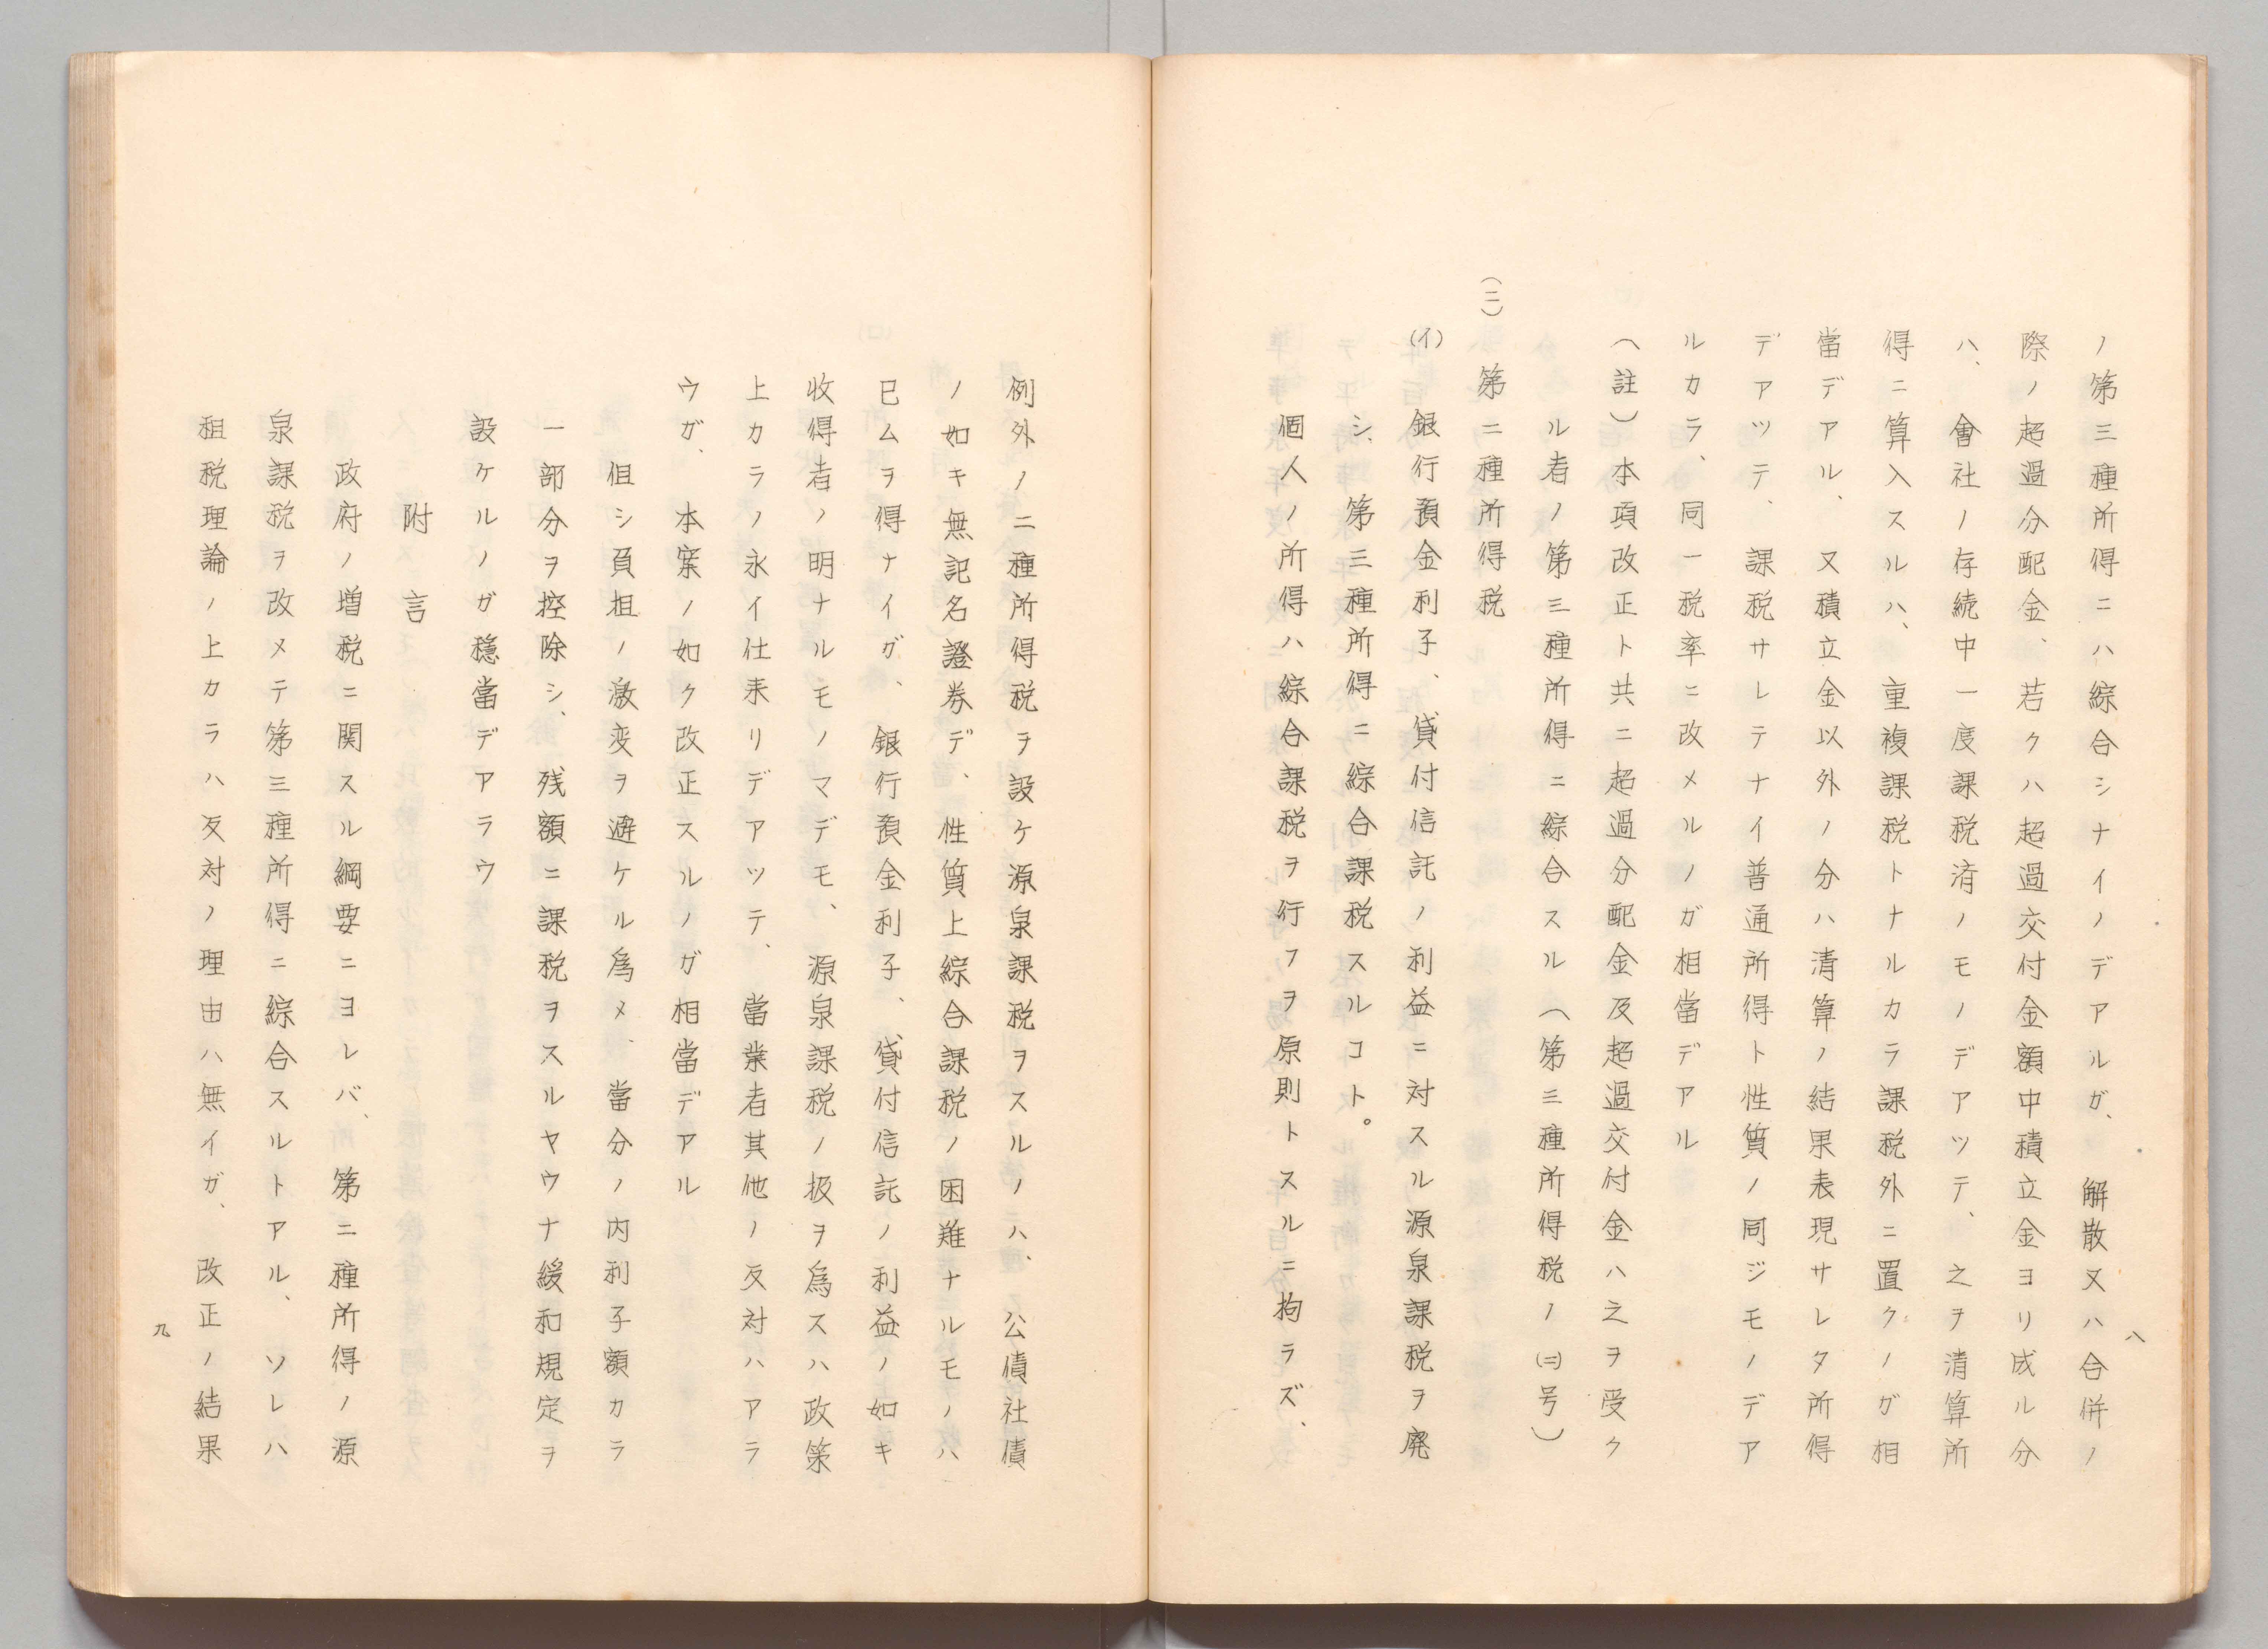 ノ第三種所得ニハ綜合シナイノデアルガ、解散又ハ合併ノ
際ノ超過分配金、若クハ超過交付金額中積立金ヨリ成ル分
ハ、會社ノ存続中一度課税済ノモノデアツテ、之ヲ清算所
得ニ算入スルハ、重複課税トナルカラ課税外ニ置クノガ相
當デアル、又積立金以外ノ分ハ清算ノ結果表現サレタ所得
デアツテ、課税サレテナイ普通所得ト性質ノ同ジモノデア
ルカラ、同一税率ニ改メルノガ相當デアル
(註)本項改正ト共ニ超過分配金及超過交付金ハ之ヲ受ク
ル者ノ第三種所得ニ綜合スル(第三種所得税ノ(三)号)
(二)第二種所得税
(イ)銀行預金利子、貸付信託ノ利益ニ対スル源泉課税ヲ廃
シ、第三種所得ニ綜合課税スルコト。
個人ノ所得ハ綜合課税ヲ行フヲ原則トスルニ拘ラズ、
八
例外ノ二種所得税ヲ設ケ源泉課税ヲスルノハ、公債社債
ノ如キ無記名證券デ、性質上綜合課税ノ困難ナルモノハ
已ムヲ得ナイガ、銀行預金利子、貸付信託ノ利益ノ如キ
收得者ノ明ナルモノマデモ、源泉課税ノ扱ヲ為スハ政策
上カラノ永イ仕来リデアツテ、當業者其他ノ反対ハアラ
ウガ、本案ノ如ク改正スルノガ相當デアル
但シ負担ノ激変ヲ避ケル為メ、當分ノ内利子額カラ
一部分ヲ控除シ、残額ニ課税ヲスルヤウナ緩和規定ヲ
設ケルノガ穏當デアラウ
附言
政府ノ増税ニ関スル綱要ニヨレバ、第二種所得ノ源
泉課税ヲ改メテ第三種所得ニ綜合スルトアル、ソレハ
租税理論ノ上カラハ反対ノ理由ハ無イガ、改正ノ結果
九